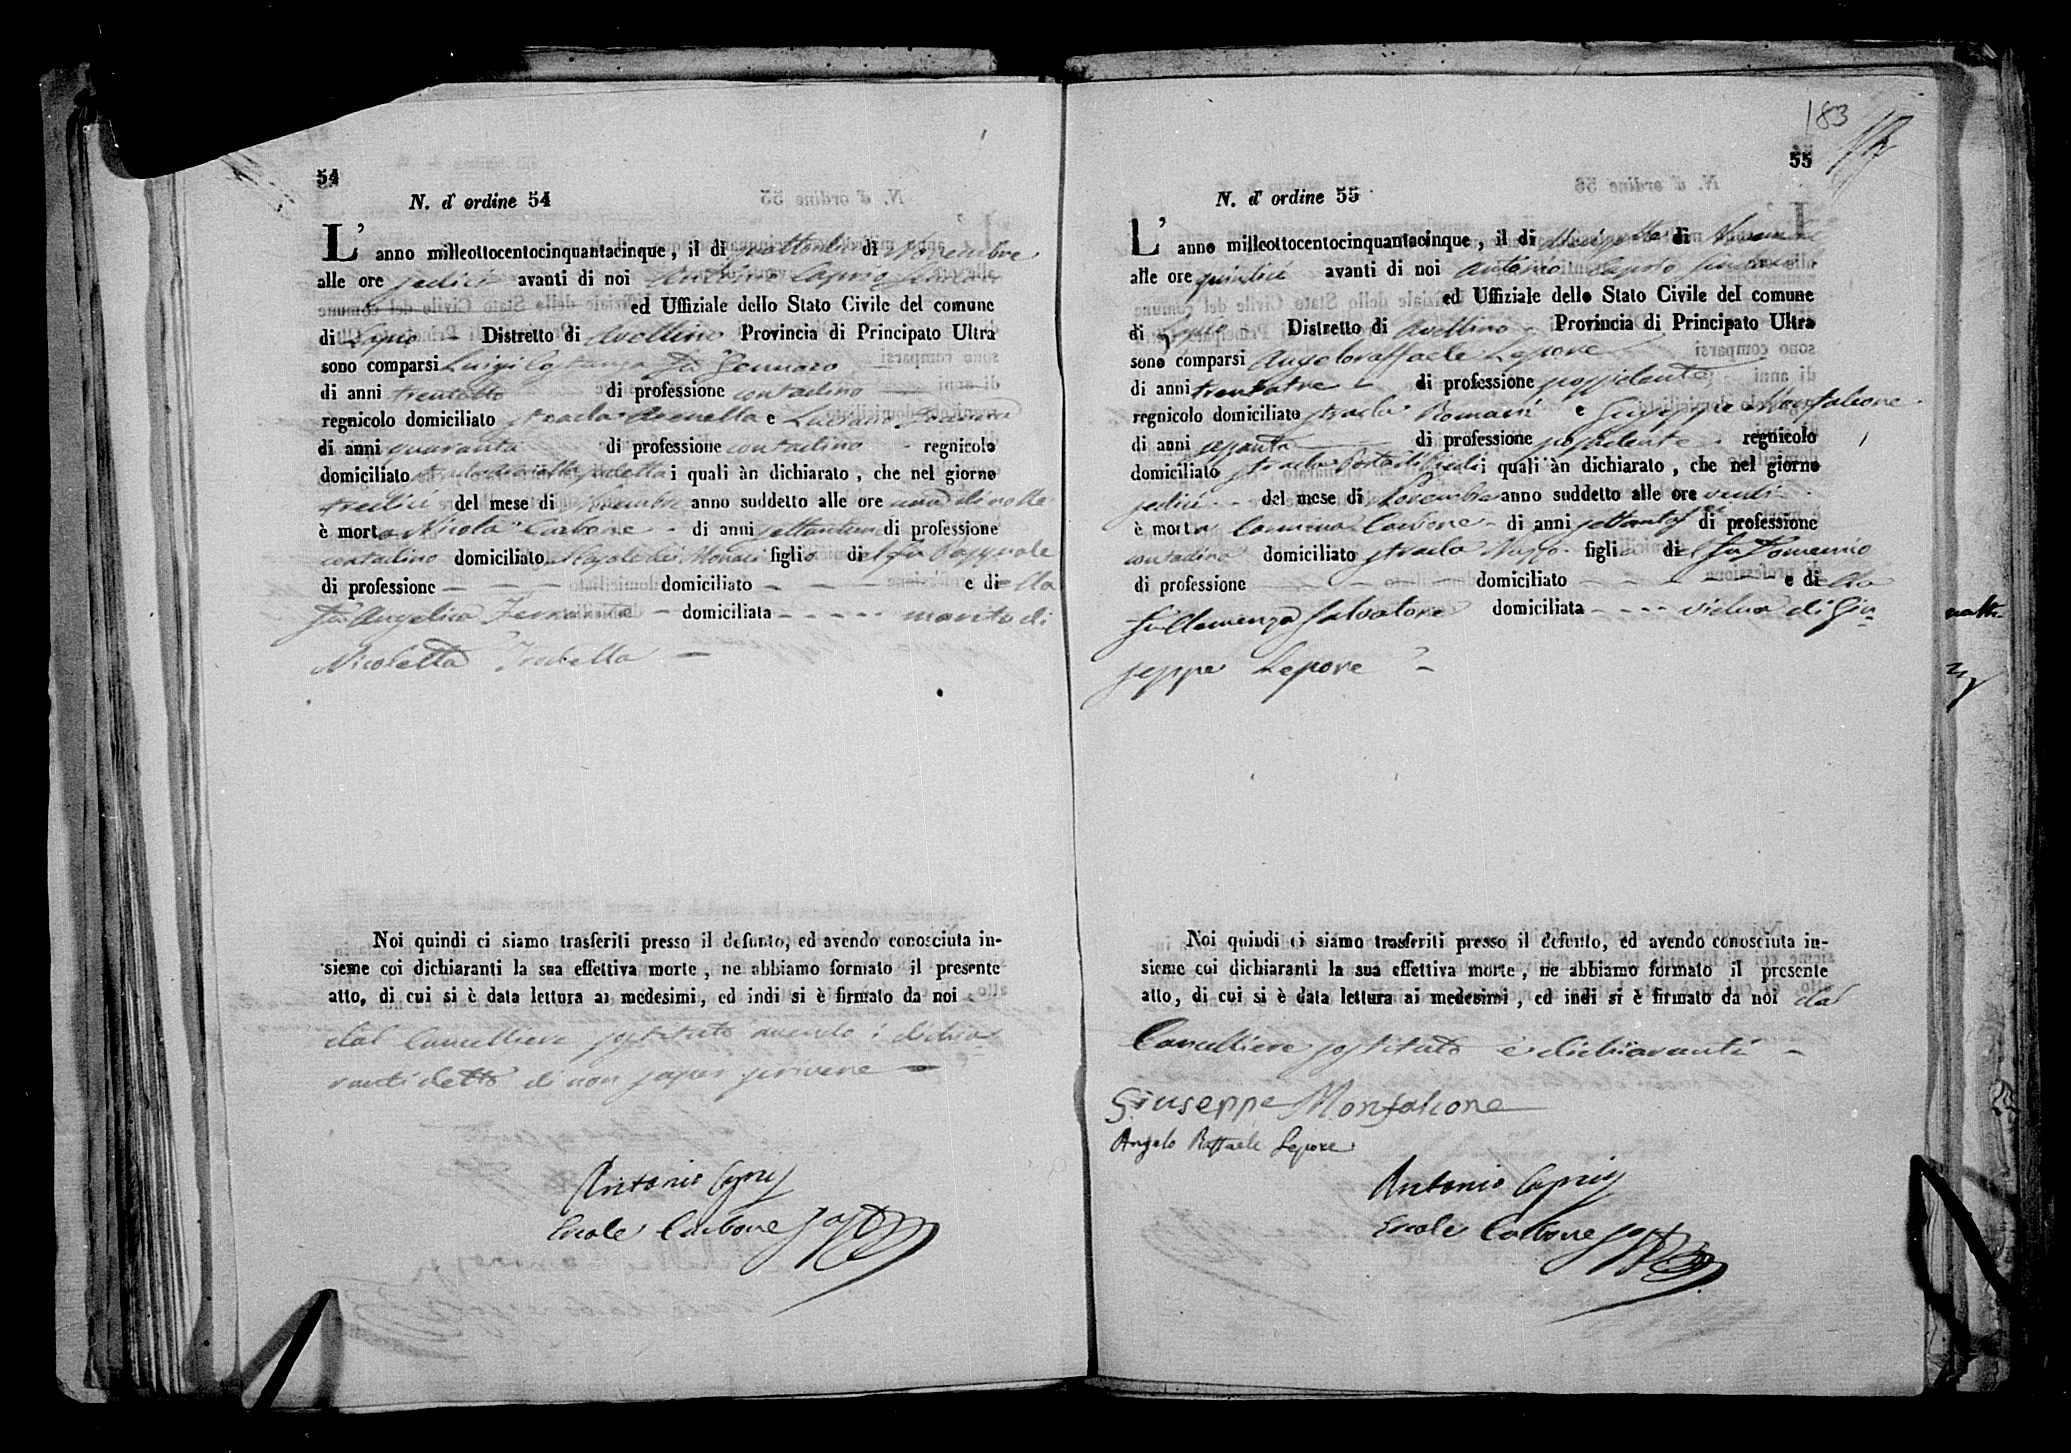 54
N. d' ordine 54
L' anno milleottocentocinquantacinque, il di quattordici di Novembre
alle ore sedici avanti di noi Antonio Caprio Sindaco
ed Uffiziale dello Stato Civile del comune
di Distretto di Avellino Provincia di Principato Ultra
sono comparsi Luigi Costanza fu Gennaro
di anni trentotto di professione contadino
regnicolo domiciliato strada e Luciano
di anni quaranta di professione contadino regnicolo
domiciliato strada i quali àn dichiarato, che nel giorno
tredici del mese di Novembre anno suddetto alle ore una di notte
è morto Nicola Carbone di anni di professione
contadino domiciliato figlio del fu Pasquale
di professione domiciliato e della
fu Angelica domiciliata marito di
Nicoletta
Noi quindi ci siamo trasferiti presso il defunto, ed avendo conosciuta in-
sieme coi dichiaranti la sua effettiva morte, ne abbiamo formato il presente
atto, di cui si è data lettura ai medesimi, ed indi si è firmato da noi
dal Cancelliere sostituto avendo i dichia-
ranti detto di non saper scrivere
Antonio Caprij
Ercole Carbone Sost
183
55
N. d' ordine 55
L' anno milleottocentocinquantacinque, il di diecisette di Novembre
alle ore quindici avanti di noi Antonio Caprio Sindaco
ed Uffiziale dello Stato Civile del comune
di Distretto di Avellino Provincia di Principato Ultra
sono comparsi Angeloraffaele Lepore
di anni trentatre di professione possidente
regnicolo domiciliato strada Romani e Giuseppe Monfalcone
di anni sessanta di professione possidente regnicolo
domiciliato strada Porta di i quali àn dichiarato, che nel giorno
sedici del mese di Novembre anno suddetto alle ore venti
è morta Carmina Carbone di anni settantasei di professione
contadina domiciliato strada figlia del fu Domenico
di professione domiciliato e della
fu Clemenza Salvatore domiciliata vidua di Giu-
seppe Lepore
Noi quindi ci siamo trasferiti presso il defunto, ed avendo conosciuta in-
sieme coi dichiaranti la sua effettiva morte, ne abbiamo formato il presente
atto, di cui si è data lettura ai medesimi, ed indi si è firmato da noi dal
Cancelliere sostituto e dichiaranti
Giuseppe Monfalcone
Angelo Raffaele Lepore
Antonio Caprij
Ercole Carbone Sost